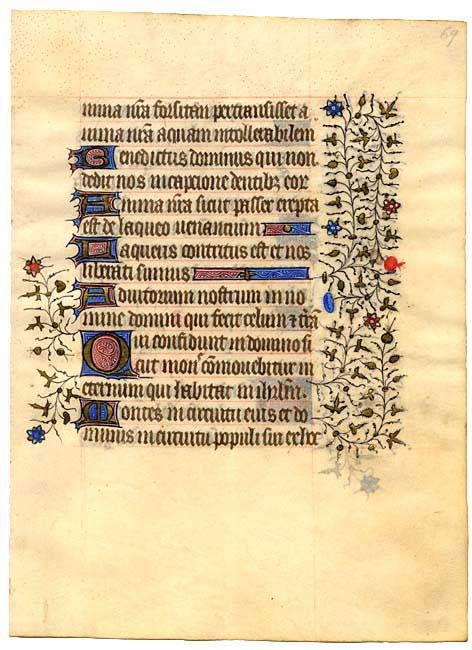 69
nima nr̄a forsitan pertransisset a
nima nr̄a aquam intollerabilem
Benedictus dominus qui non
dedit nos in capcione dentibꝫ eoꝝ
Anima nr̄a sicut passer erepta
est de laqueo uenancium
Laqueus contritus est et nos
liberati sumus
Adiutorium nostrum in no
mine domini qui fecit celum ⁊ t̄rā
Qui confidunt in domino si
cut cōmouebitur in
eternum qui habitat in ihrl̄m.
Montes in circuitu eius et do
minus in circuitu populi sui ex hoc